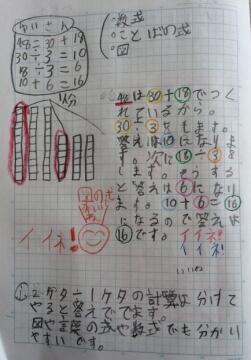 けいさん
48÷30+18
30÷3=10
18÷3=6
10+6=16
・数式
・ことばの式
・図
1人分
48は30+18でつく
れているから。
30÷3をします。
答えは10になりま
す。次に18÷3を
します。そうする
と答えは6になり
ます。10+6=16
になるので答えは
16です。
イイネ!
イイネ!
イイネ!
いいね
2ケタ÷1ケタの計算は分けて
やると答えでてます。
図や言葉の式や数式でも分かり
やすいです。